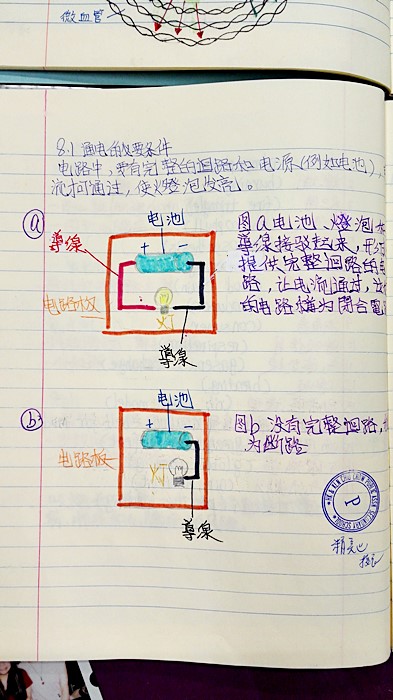 微血管
8.1 通电的必要条件
电路中,要有完整的迴路和电源(例如电池),
流才可通过,使灯燈泡发亮。
a
电池
導線
+ -
电路板
灯
導線
图a电池、燈泡
導線接駁起來,形
提供完整迴路的
路,让电流通过,
的电路稱为閉合電
b
电池
+ -
电路板
灯
導線
图b 没有完整迴路,
为断路
P